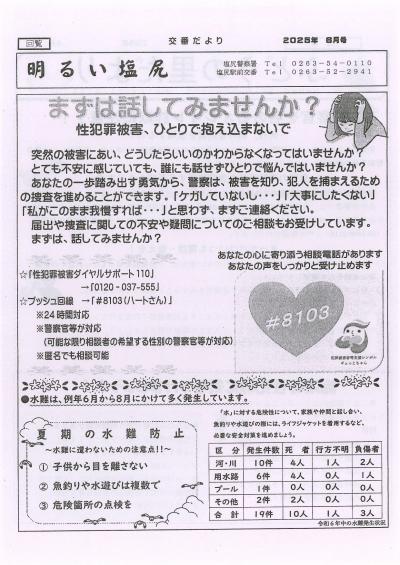 回覧
交番だより
2025年 8月号
明るい塩尻
塩尻警察署 Tel 0263-54-0110
塩尻駅前交番 Tel 0263-52-2941
まずは話してみませんか？
性犯罪被害、ひとりで抱え込まないで
突然の被害にあい、どうしたらいいのかわからなくなってはいませんか？
とても不安に感じていても、誰にも話せずひとりで悩んではいませんか？
あなたの一歩踏み出す勇気から、警察は、被害を知り、犯人を捕まえるため
の捜査を進めることができます。「ケガしていないし・・・」「大事にしたくない」
「私がこのまま我慢すれば・・・」と思わず、まずご連絡ください。
届出や捜査に関しての不安や疑問についてのご相談もお受けしています。
まずは、話してみませんか？
あなたの心に寄り添う相談電話があります
あなたの声をしっかりと受け止めます
☆「性犯罪被害ダイヤルサポート110」
→「0120-037-555」
☆プッシュ回線 →「#8103（ハートさん）」
※24時間対応
※警察官等が対応
（可能な限り相談者の希望する性別の警察官等が対応）
※匿名でも相談可能
#8103
犯罪被害者等支援シンボル
ギュっとちゃん
●水難は、例年6月から8月にかけて多く発生しています。
夏期の水難防止
～水難に遭わないための注意点！！～
① 子供から目を離さない
② 魚釣りや水遊びは複数で
③ 危険箇所の点検を
「水」に対する危険性について、家族や仲間と話し合い、
魚釣りや水遊びの際には、ライフジャケットを着用するなど、
必要な安全対策を進めましょう。
区 分 発生件数 死 者 行方不明 負傷者
河・川 10件 4人 1人 2人
用水路 6件 4人 0人 1人
プール 1件 0人 0人 0人
その他 2件 2人 0人 0人
合 計 19件 10人 1人 3人
令和6年中の水難発生状況